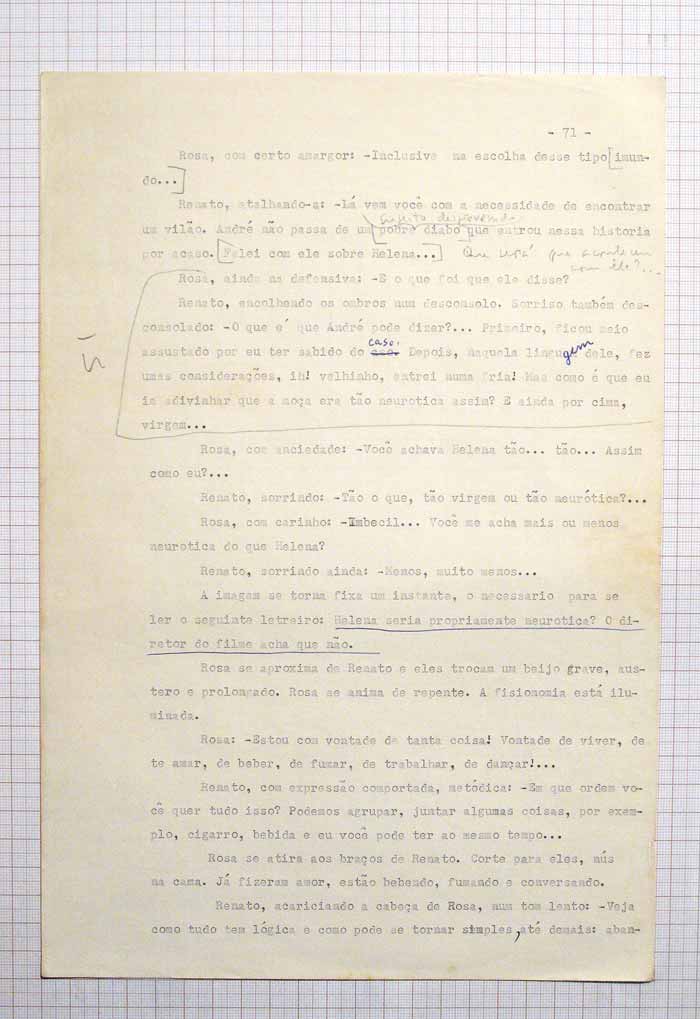 - 71 -
Rosa, com certo amargor: -Inclusive na escolha desse tipo [imun-
do...]
Renato, atalhando-a: -Lá vem você com a necessidade de encontrar
sujeito desprevenido
um vilão. André não passa de um pobre diabo que entrou nessa historia
por acaso. [Falei com ele sobre Helena...] Que será que aconteceu
com ele?...
Rosa, ainda na defensiva: -E o que foi que ele disse?
Renato, encolhendo os ombros num desconsolo. Sorriso também des-
consolado: -O que é que André pode dizer?... Primeiro, ficou meio
caso.
assustado por eu ter sabido do Depois, naquela linguagem dele, fez
umas considerações, ih! velhinho, entrei numa fria! Mas como é que eu
ia adivinhar que a moça era tão neurotica assim? E ainda por cima,
virgem...
Rosa, com anciedade: -Você achava Helena tão... tão... Assim
como eu?...
Renato, sorrindo: -Tão o que, tão virgem ou tão neurótica?...
Rosa, com carinho: -Imbecil... Você me acha mais ou menos
neurotica do que Helena?
Renato, sorrindo ainda: -Menos, muito menos...
A imagem se torna fixa um instante, o necessario para se
ler o seguinte letreiro: Helena seria propriamente neurotica? O di-
retor do filme acha que não.
Rosa se aproxima de Renato e eles trocam um beijo grave, aus-
tero e prolongado. Rosa se anima de repente. A fisionomia está ilu-
minada.
Rosa: -Estou com vontade de tanta coisa! Vontade de viver, de
te amar, de beber, de fumar, de trabalhar, de dançar!...
Renato, com expressão comportada, metódica: -Em que ordem vo-
cê quer tudo isso? Podemos agrupar, juntar algumas coisas, por exem-
plo, cigarro, bebida e eu você pode ter ao mesmo tempo...
Rosa se atira aos braços de Renato. Corte para eles, nús
na cama. Já fizeram amor, estão bebendo, fumando e conversando.
Renato, acariciando a cabeça de Rosa, num tom lento: -Veja
como tudo tem lógica e como pode se tornar simples, até demais: aban-